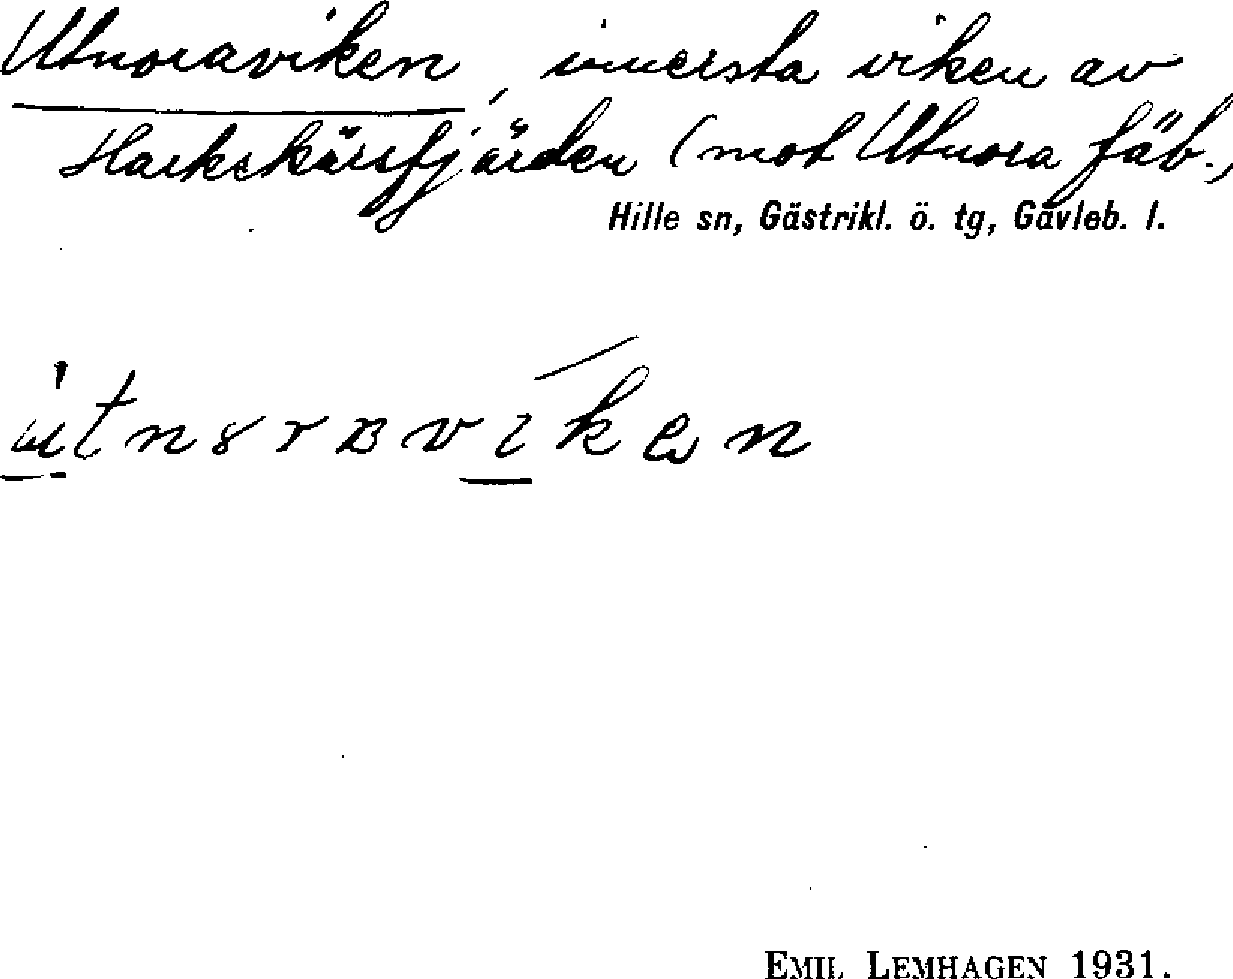 Utnoraviken, innersta viken av
Harkskärsfjärden (mot Utnora fäb.,
Hille sn, Gästrikl. ö. tg, Gävleb. l.
EMIL LEMHAGEN 1931.